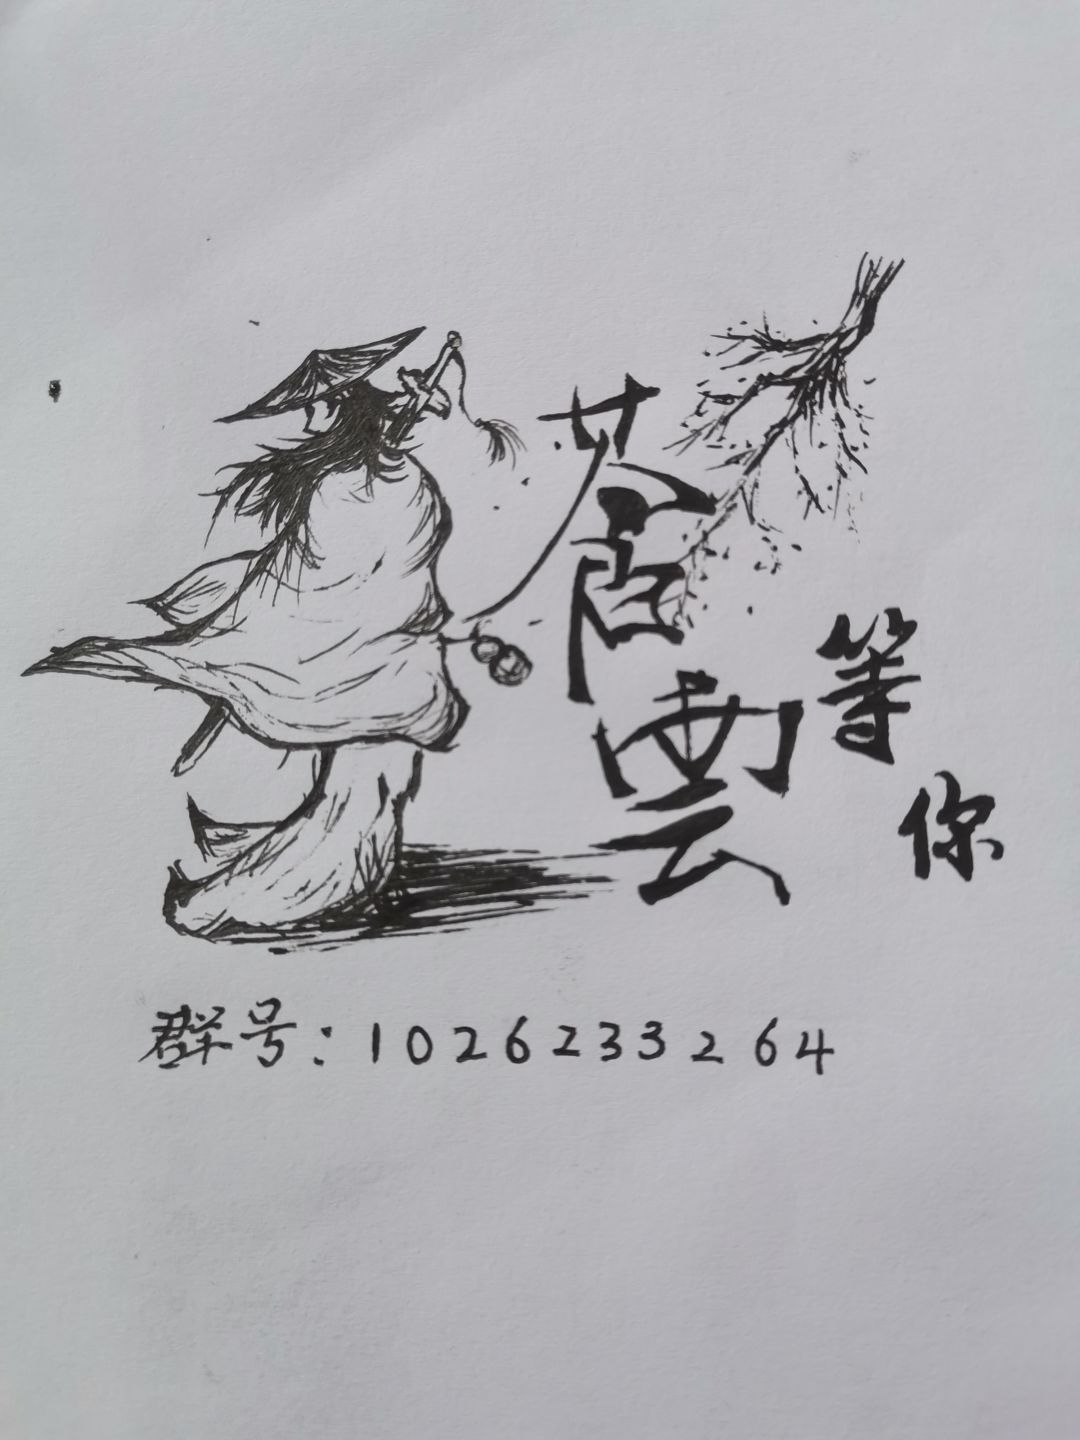 苍雲
等你
群号：1026233264